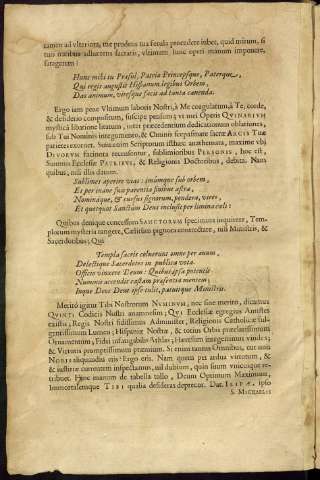 tamen ad vlteriora, me prodeus tua setula procedere iubet, quid mirum, si
tuo naribus adhærens sacratis, vltimam hunc operi manum imponere,
satagerem?
Hunc mihi tu Præsul, Patria Princepsque, Paterque,
Qui regis augustis Hispanum legibus Orbem,
Das animum, viresque facis ad tanta canenda.
Ergo iam pene Vltimum laboris Nostri, à Me coagulatum, à Te, corde,
& desiderio compositum, suscipe præsens; vt mei Operis QVINARIVM
mystica libatione litatum, inter præcedentium dedicationum oblationes,
sub Tui Nominis integumento, & Omnis strepsimaste sacræ ARCIS TVÆ
parietes exornet. Suus enim Scriptorum isthæc anathemata, maxime vbi
DIVORVM facinora recensentur, sublimioribus PERSONIS, hoc est,
Summis Ecclesiæ PATRIBVS, & Religionis Doctoribus, debita. Nam
quibus, nisi illis datum.
Sublimes aperire vias: imumque sub orbem,
Et per inane suis parentia finibus astra,
Nominaque, & cursus signorum, pondera, vires,
Et quotquot Sanctum Deus inclusit per limina cœli:
Quibus denique concessum SANCTORVM specimina inquirere, Tem-
plorum mysteria tangere, Cælitum pugnora contrectare, nisi Ministris, &
Sacerdotibus; Qui
Templa sacris coluerunt omne per æuum,
Delectique Sacerdotes in publica vota.
Officio vincere Deum: Quibus ipsa potentis
Numinis accendit castam præsentia mentem;
Inque Deos Deus ipse tulit, patuitque Ministris.
Meritò igitur Tibi Nostrorum NVMINVM, nec sine merito, dicamus
QVINTI Codicis Nostri anamnesim; QVI Ecclesiæ egregius Antistes
extitis; Regis Nostri fidissimus Administer, Religionis Catholicæ ful-
gentissimum Lumen; Hispaniæ Nostræ, & totius Orbis præclarissimum
Ornamentum; Fidei infatigabilis Athlas; Hæresum integerrimus vindex;
& Virtutis promptissimum præmium. Si enim tantus Omnibus, cur non
NOBIS aliquando eris? Ergo eris. Nam quem per ardua virtutem, &
& iustitiæ currentem inspectamus, nil dubium, quin suum vnicuique re-
tribuet. Hinc manum de tabella tollo, Deum Optimum Maximum,
Immortalemque TIBI qualia desideras deprecor. Dat. ILIPÆ, ipso
S. MICHAELIS